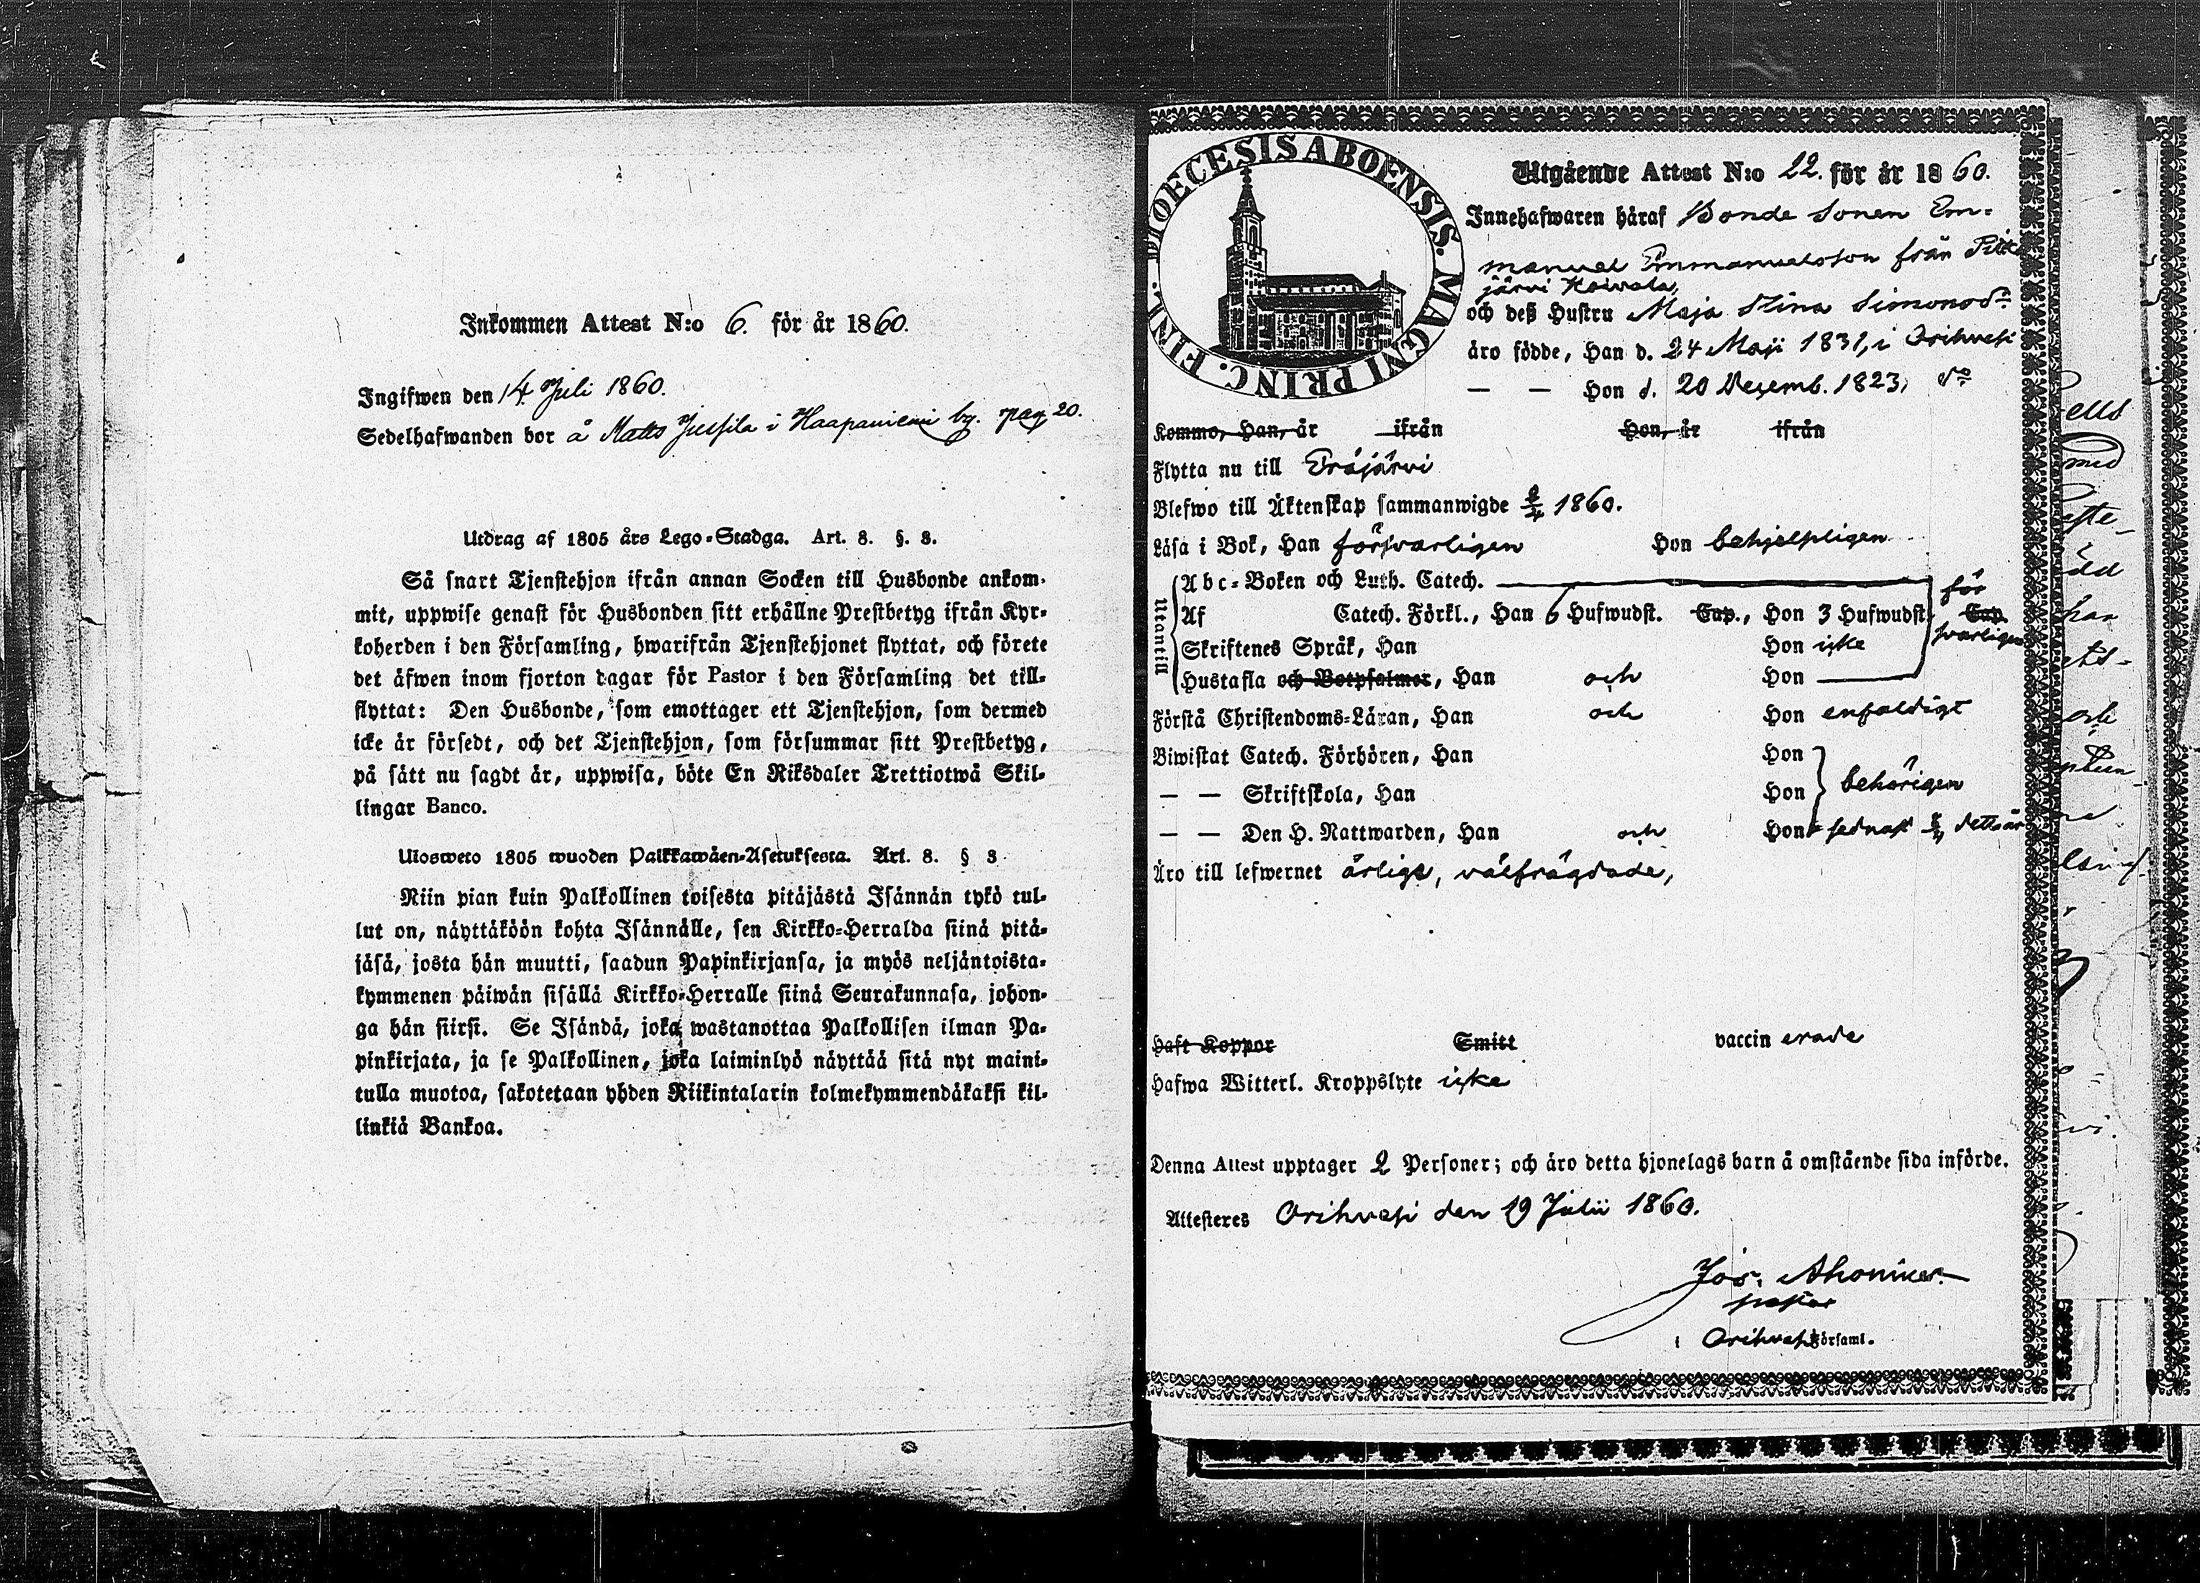 Inkommen Attest N:o 6. för år 1860.
Ingifwen den 14 Juli 1860.
Sedelhafwanden bor å Matts Jussila i Haapaniemi by. pag 20.
Utdrag af 1805 års Lego-Stadga. Art. 8. §. 8.
Så snart Tjenstehjon ifrån annan Socken till Husbonde ankom-
mit, uppwise genast för Husbonden sitt erhållne Prestbetyg ifrån Kyr-
koherden i den Församling, hwarifrån Tjenstehjonet flyttat, och förete
det äfwen inom fjorton dagar för Pastor i den Församling det till-
flyttat: Den Husbonde, som emottager ett Tjenstehjon, som dermed
icke är försedt, och det Tjenstehjon, som försummar sitt Prestbetyg,
på sätt nu sagdt är, uppwisa, böte En Riksdaler Trettiotwå Skil-
lingar Banco.
Ulosweto 1805 wuoden Palkkawäen-Asetuksesta. Art. 8. § 3
Niin pian kuin Palkollinen toisesta pitäjästä Isännän tykö tul-
lut on, näyttäköön kohta Isännälle, sen Kirkko-Herralda siinä pitä-
jäsä, josta hän muutti, saadun Papinkirjansa, ja myös neljäntoista-
kymmenen päiwän sisällä Kirkko-Herralle siinä Seurakunnasa, johon-
ga hän siirsi. Se Isändä, joka wastanottaa Palkollisen ilman Pa-
pinkirjata, ja se Palkollinen, joka laiminlyö näyttää sitä nyt maini-
tulla muotoa, sakotetaan yhden Riikintalarin kolmekymmendäkaksi kil-
linkiä Bankoa.
DIOECESIS ABOENSIS. MAGNI PRINC. FINL.
Utgående Attest N:o 22. för år 1860.
Innehafwaren häraf Bonde Sonen Em-
manuel Emmanuelsson från
järvi Koivala,
och deß Hustru Maja Stina Simonsdr
äro födde, Han d. 24 Maji 1831, i Orihvesi
— — Hon d. 20 Decemb. 1823, do
Komme, Han, år ifrån Hon, år ifrån
Flytta nu till Eräjärvi
Blefwo till Äktenskap sammanwigde 1860.
Läsa i Bok, Han försvarligen Hon behjelpligen
Utantill
Abc-Boken och Luth. Catech. för
Af Catech. Förkl., Han 6 Hufwudst. Cap., Hon 3 Hufwudst. Cap.
svarligen
Skriftenes Språk, Han Hon icke
Hustafla och Botpsalmer, Han och Hon
Förstå Christendoms-Läran, Han och Hon enfaldigt
Biwistat Catech. Förhören, Han Hon
— — Skriftskola, Han Hon behörigen
— — Den H. Nattwarden, Han och Hon sednast detta år
Äro till lefwernet ärliga, välfrägdade,
Haft Koppor Smitt vaccin erade
Hafwa Witterl. Kroppslyte icke
Denna Attest upptager 2 Personer; och äro detta hjonelags barn å omstående sida införde.
Attesteres Orihvesi den 19 Julii 1860.
Jos. Ahonius.
pastor
i Orihvesi Församl.